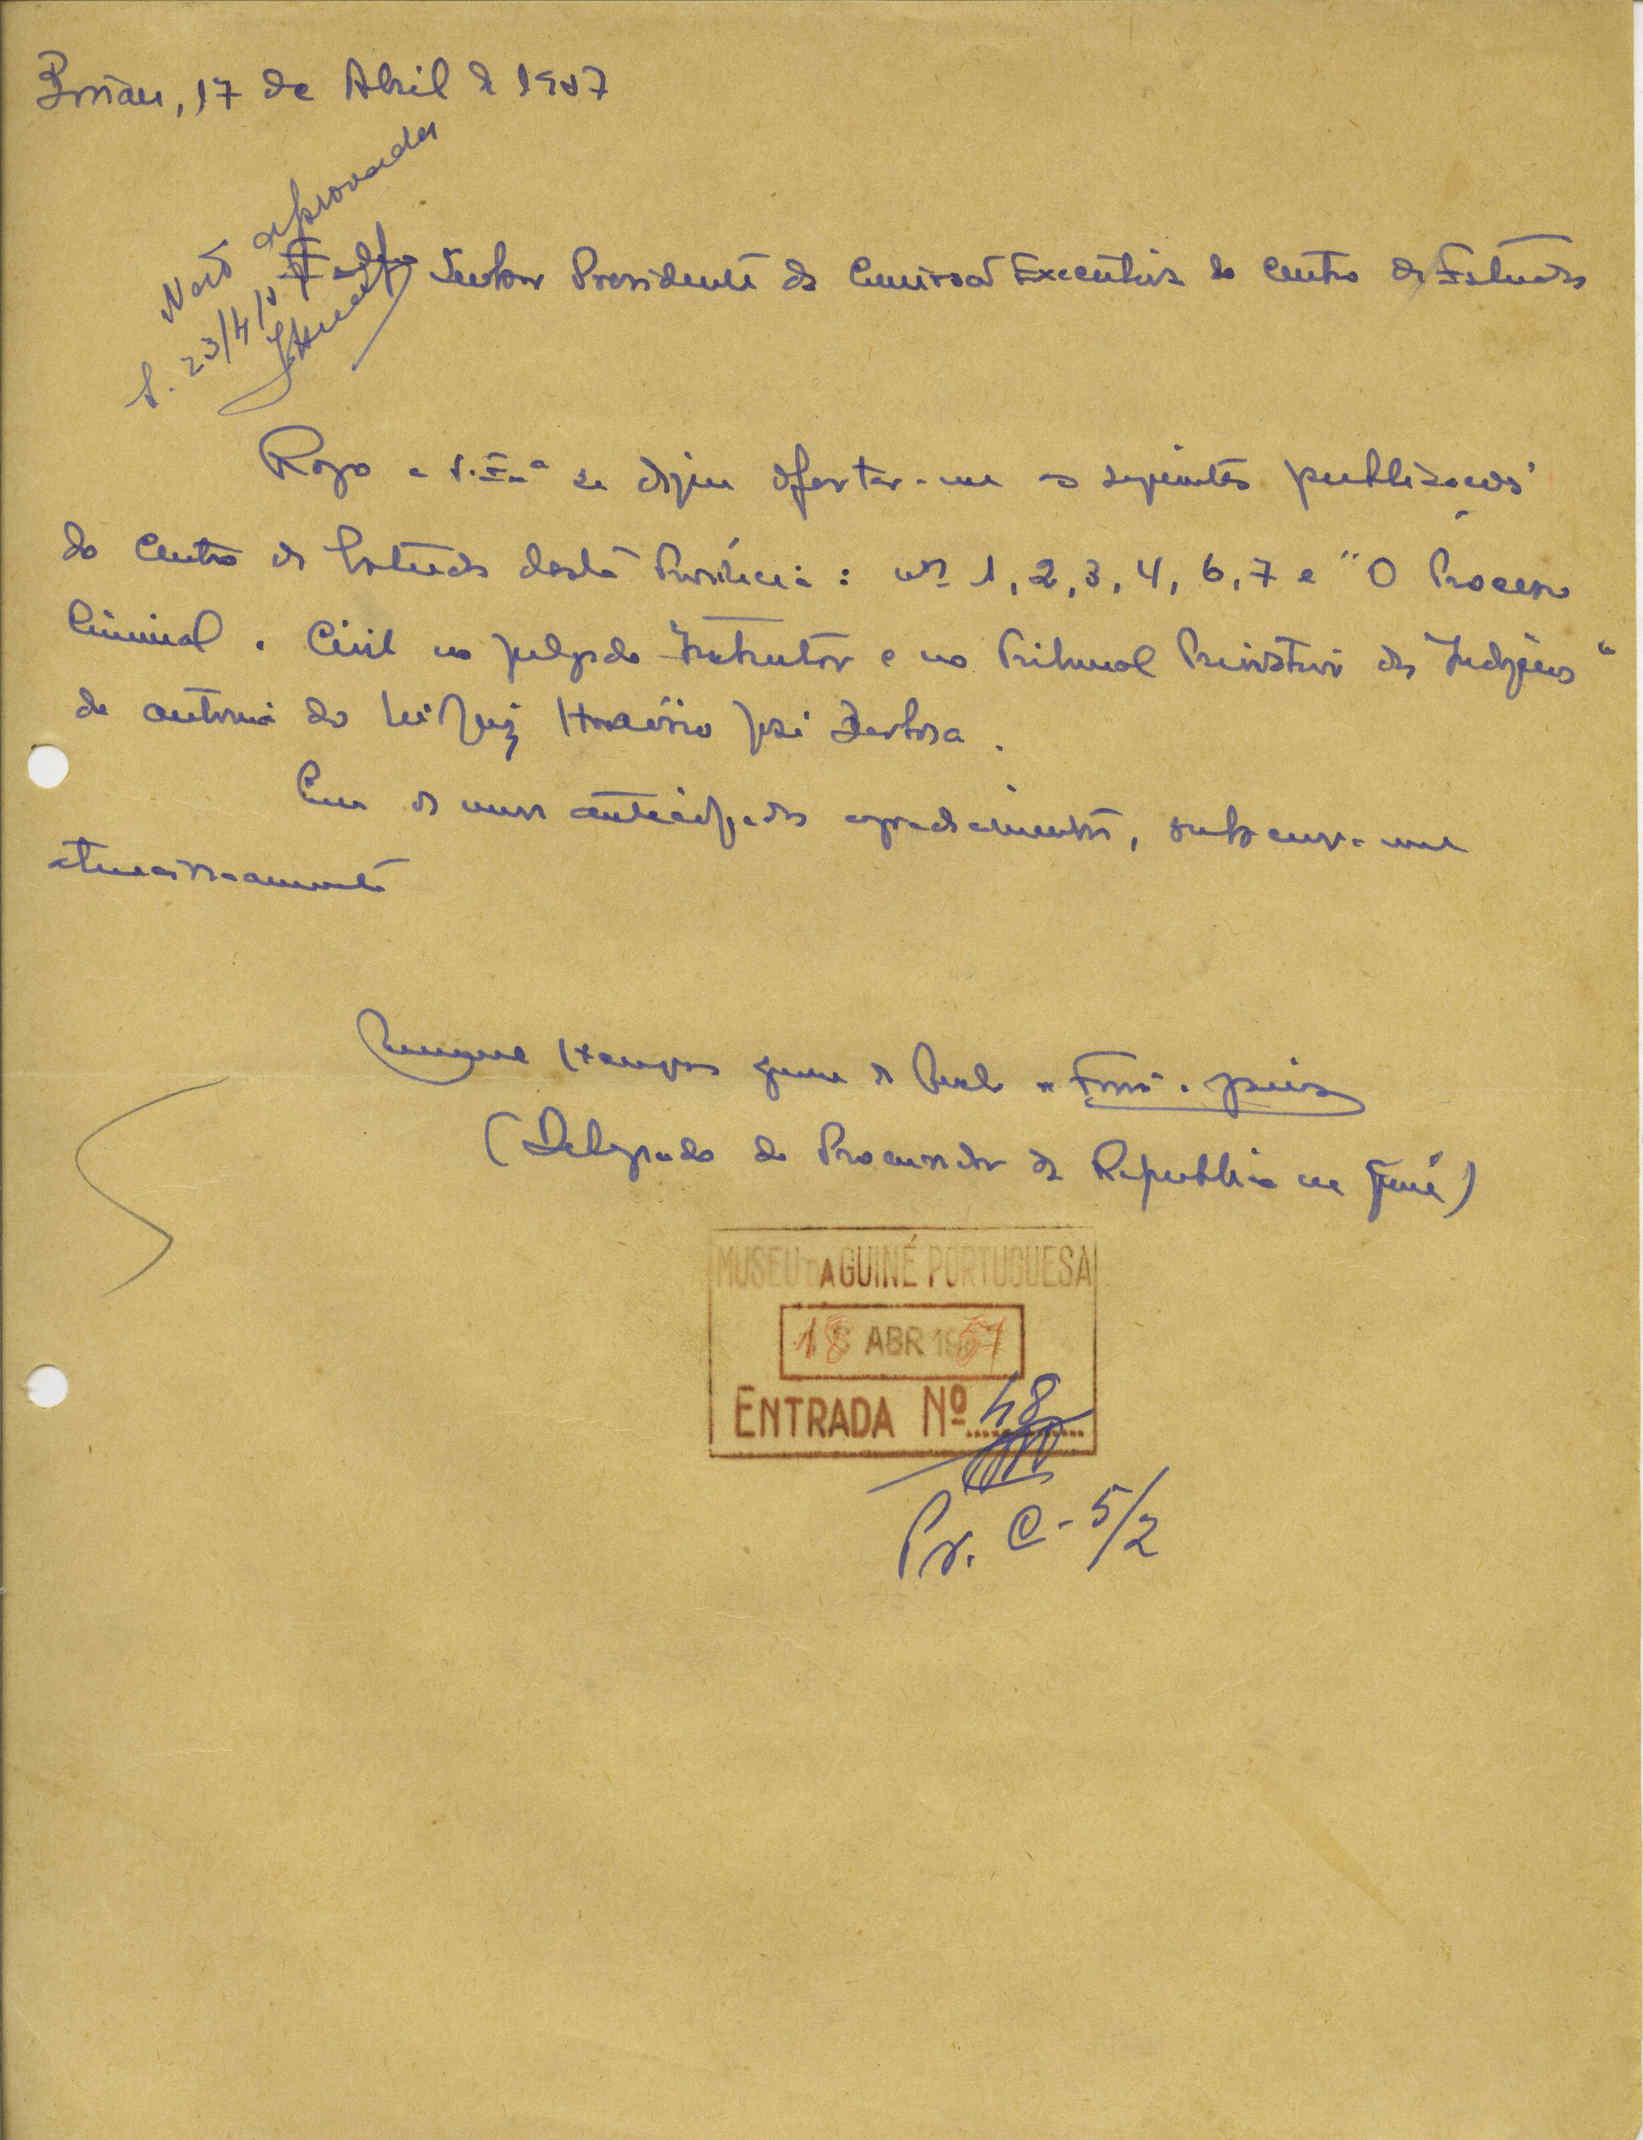 Bissau, 17 de Abril de 1957
Não aprovado
S. 23/4/5
Senhor Presidente da Comissão Executiva do Centro de Estudos
Rogo a V. Exª se digne ofertar-me as seguintes publicações
do Centro de Estudos desta Província: nºs 1, 2, 3, 4, 6, 7 e "O Processo
Criminal e Civil no Julgado Instrutor e no Tribunal Privativo dos Indígenas"
de autoria do Juiz Horácio José Barbosa.
Com os meus antecipados agradecimentos, subscrevo-me
atenciosamente
(Delegado do Procurador da República na Guiné)
MUSEU DA GUINÉ PORTUGUESA
18 ABR 1957
ENTRADA Nº 48
Pr. C-5/2